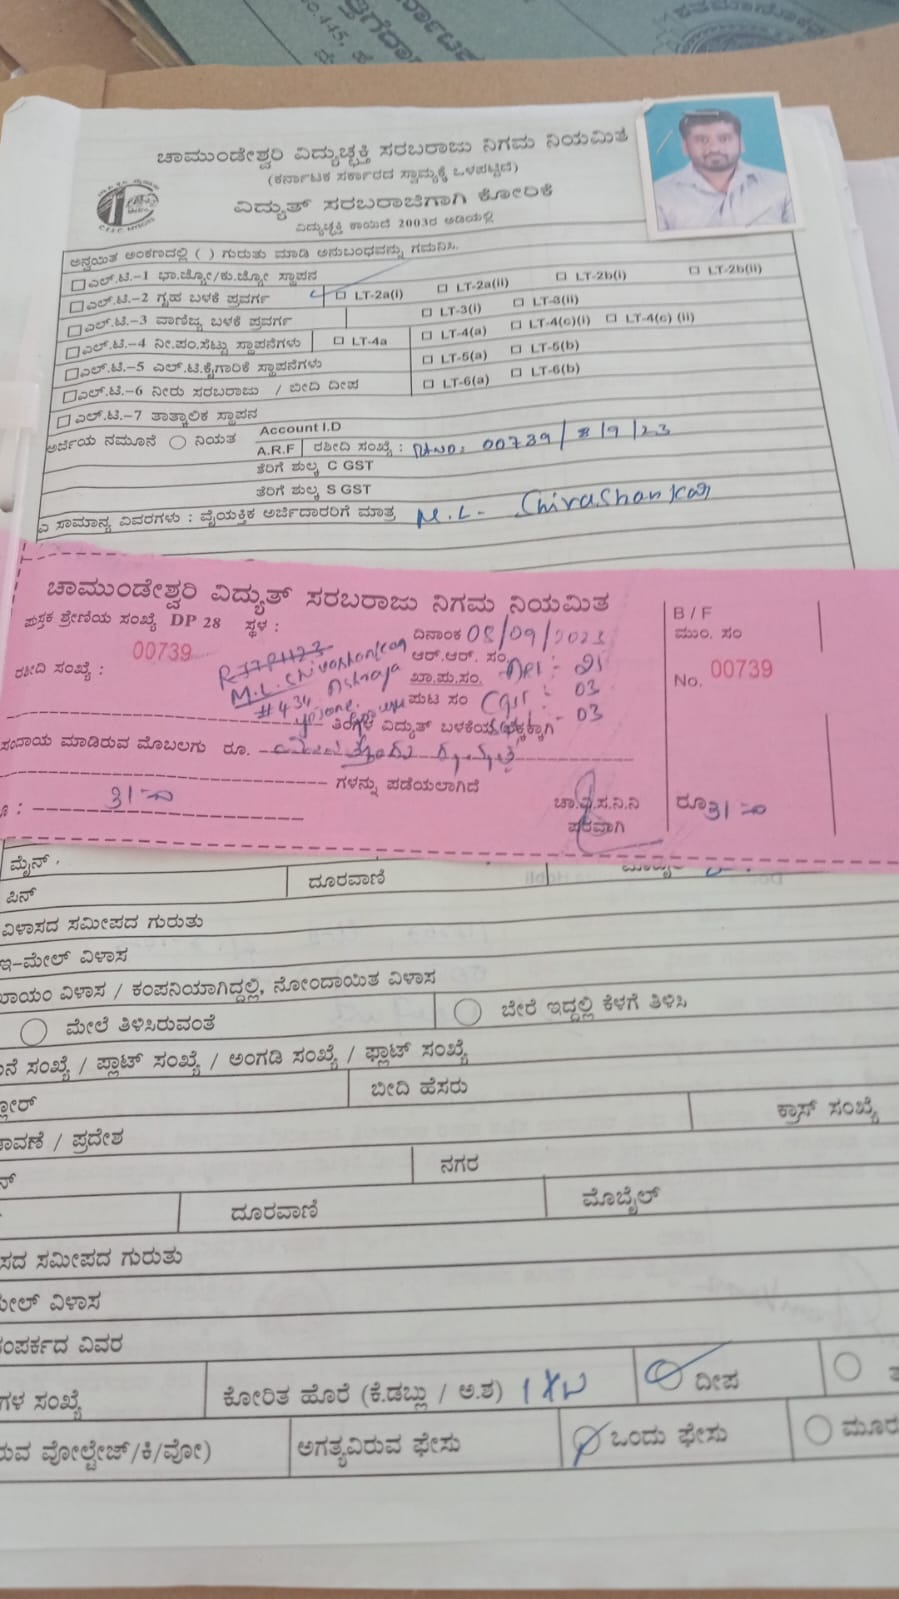 ಚಾಮುಂಡೇಶ್ವರಿ ವಿದ್ಯುಚ್ಛಕ್ತಿ ಸರಬರಾಜು ನಿಗಮ ನಿಯಮಿತ
(ಕರ್ನಾಟಕ ಸರ್ಕಾರದ ಸ್ವಾಮ್ಯಕ್ಕೆ ಒಳಪಟ್ಟಿದೆ)
ವಿದ್ಯುತ್ ಸರಬರಾಜಿಗಾಗಿ ಕೋರಿಕೆ
ವಿದ್ಯುಚ್ಛಕ್ತಿ ಕಾಯಿದೆ 2003ರ ಅಡಿಯಲ್ಲಿ
ಅನ್ವಯಿತ ಅಂಕಣದಲ್ಲಿ ( ) ಗುರುತು ಮಾಡಿ ಅನುಬಂಧವನ್ನು ಗಮನಿಸಿ.
ಎಲ್.ಟಿ.-1 ಭಾ.ಜ್ಯೋ/ಕು.ಜ್ಯೋ ಸ್ಥಾಪನ
ಎಲ್.ಟಿ.-2 ಗೃಹ ಬಳಕೆ ಪ್ರವರ್ಗ LT-2a(i) LT-2a(ii) LT-2b(i) LT-2b(ii)
ಎಲ್.ಟಿ.-3 ವಾಣಿಜ್ಯ ಬಳಕೆ ಪ್ರವರ್ಗ LT-3(i) LT-3(ii)
ಎಲ್.ಟಿ.-4 ನೀ.ಪಂ.ಸೆಟ್ಟು ಸ್ಥಾಪನೆಗಳು LT-4a LT-4(a) LT-4(c)(i) LT-4(c) (ii)
ಎಲ್.ಟಿ.-5 ಎಲ್.ಟಿ.ಕೈಗಾರಿಕೆ ಸ್ಥಾಪನೆಗಳು LT-5(a) LT-5(b)
ಎಲ್.ಟಿ.-6 ನೀರು ಸರಬರಾಜು / ಬೀದಿ ದೀಪ LT-6(a) LT-6(b)
ಎಲ್.ಟಿ.-7 ತಾತ್ಕಾಲಿಕ ಸ್ಥಾಪನ
ಅರ್ಜಿಯ ನಮೂನೆ ನಿಯತ Account I.D
A.R.F ರಶೀದಿ ಸಂಖ್ಯೆ : 00739/8/9/23
ತೆರಿಗೆ ಶುಲ್ಕ C GST
ತೆರಿಗೆ ಶುಲ್ಕ S GST
ಎ ಸಾಮಾನ್ಯ ವಿವರಗಳು : ವೈಯಕ್ತಿಕ ಅರ್ಜಿದಾರರಿಗೆ ಮಾತ್ರ M.L. Shivashankar
ಚಾಮುಂಡೇಶ್ವರಿ ವಿದ್ಯುತ್ ಸರಬರಾಜು ನಿಗಮ ನಿಯಮಿತ
ಪುಸ್ತಕ ಶ್ರೇಣಿಯ ಸಂಖ್ಯೆ DP 28 ಸ್ಥಳ :
ದಿನಾಂಕ 08/09/2023
B / F
ಮುಂ. ಸಂ
ರಶೀದಿ ಸಂಖ್ಯೆ : 00739
M.L. Shivashankar
#434
ಆರ್.ಆರ್. ಸಂ.
ಖಾ.ಪು.ಸಂ. 21
ಪುಟ ಸಂ 03
03
No. 00739
ತಿಂಗಳ ವಿದ್ಯುತ್ ಬಳಕೆಯ
ಸಂದಾಯ ಮಾಡಿರುವ ಮೊಬಲಗು ರೂ.
ಗಳನ್ನು ಪಡೆಯಲಾಗಿದೆ
31
ಚಾ.ವಿ.ಸ.ನಿ.ನಿ
ಪರವಾಗಿ
ರೂ 31
ಮೈನ್
ಪಿನ್ ದೂರವಾಣಿ
ವಿಳಾಸದ ಸಮೀಪದ ಗುರುತು
ಇ-ಮೇಲ್ ವಿಳಾಸ
ಖಾಯಂ ವಿಳಾಸ / ಕಂಪನಿಯಾಗಿದ್ದಲ್ಲಿ, ನೋಂದಾಯಿತ ವಿಳಾಸ
ಮೇಲೆ ತಿಳಿಸಿರುವಂತೆ ಬೇರೆ ಇದ್ದಲ್ಲಿ ಕೆಳಗೆ ತಿಳಿಸಿ
ಸಂಖ್ಯೆ / ಪ್ಲಾಟ್ ಸಂಖ್ಯೆ / ಅಂಗಡಿ ಸಂಖ್ಯೆ / ಫ್ಲಾಟ್ ಸಂಖ್ಯೆ
ಬೀದಿ ಹೆಸರು
/ ಪ್ರದೇಶ ಕ್ರಾಸ್ ಸಂಖ್ಯೆ
ನಗರ
ದೂರವಾಣಿ ಮೊಬೈಲ್
ಸಮೀಪದ ಗುರುತು
ವಿಳಾಸ
ಸಂಪರ್ಕದ ವಿವರ
ಸಂಖ್ಯೆ ಕೋರಿತ ಹೊರೆ (ಕೆ.ಡಬ್ಲು / ಅ.ಶ) 1 KW ದೀಪ
ವೋಲ್ಟೇಜ್/ಕಿ/ವೋ) ಅಗತ್ಯವಿರುವ ಫೇಸು ಒಂದು ಫೇಸು